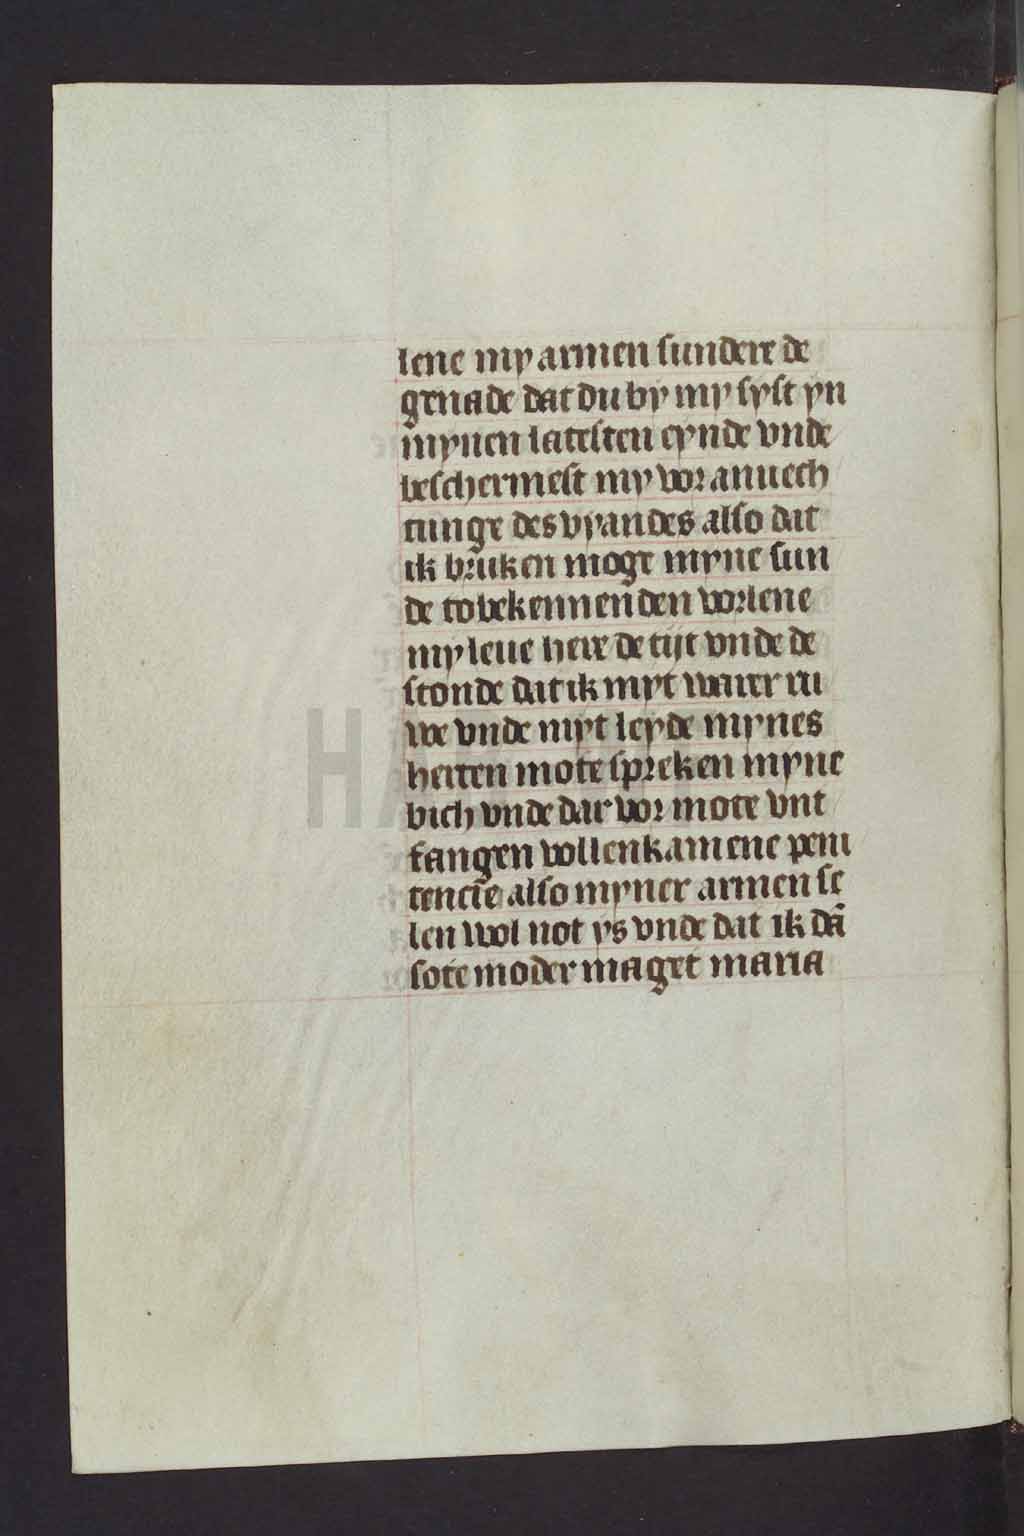 lene my armen sundere de
genade dat du by my syst yn
mynen latesten eynde vnde
beschermest my vor anuech
tunge des vyandes also dat
ik bruken moge myne sun
de to bekennen den vorlene
my leue here de tijt vnde de
stonde dat ik myt warer ru
we vnde myt leyde mynes
herten mote spreken myne
bich vnde dar vor mote vnt
fangen vollenkamene peni
tencie also myner armen se
len wol not ys vnde dat ik dā
sote moder maget maria